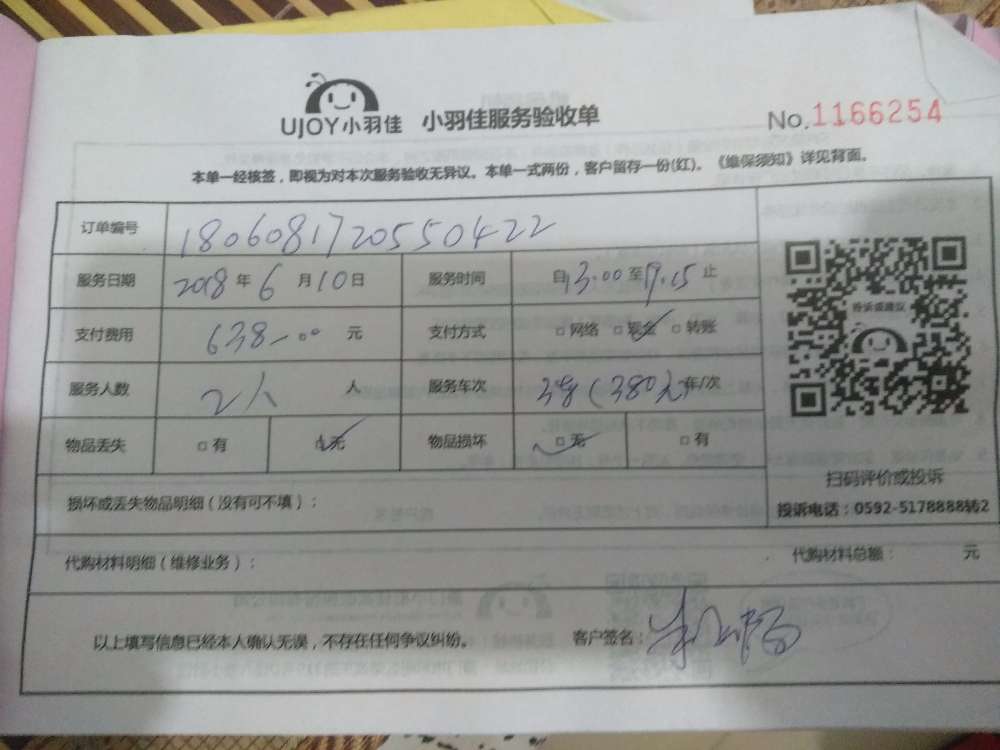 UJOY小羽佳 小羽佳服务验收单 No.1166254
本单一经核签，即视为对本次服务验收无异议。本单一式两份，客户留存一份(红)。《维保须知》详见背面。
订单编号 1806081720550422
服务日期 2018 年 6 月 10 日 服务时间 自 13:00 至 17:15 止
支付费用 638.00 元 支付方式 □网络 □现金 □转账
服务人数 2人 人 服务车次 (380元) 车/次
物品丢失 □有 □无 物品损坏 □无 □有
投诉或建议
扫码评价或投诉
损坏或丢失物品明细（没有可不填）： 投诉电话：0592-5178888转2
代购材料明细（维修业务）： 代购材料总额： 元
以上填写信息已经本人确认无误，不存在任何争议纠纷。 客户签名：